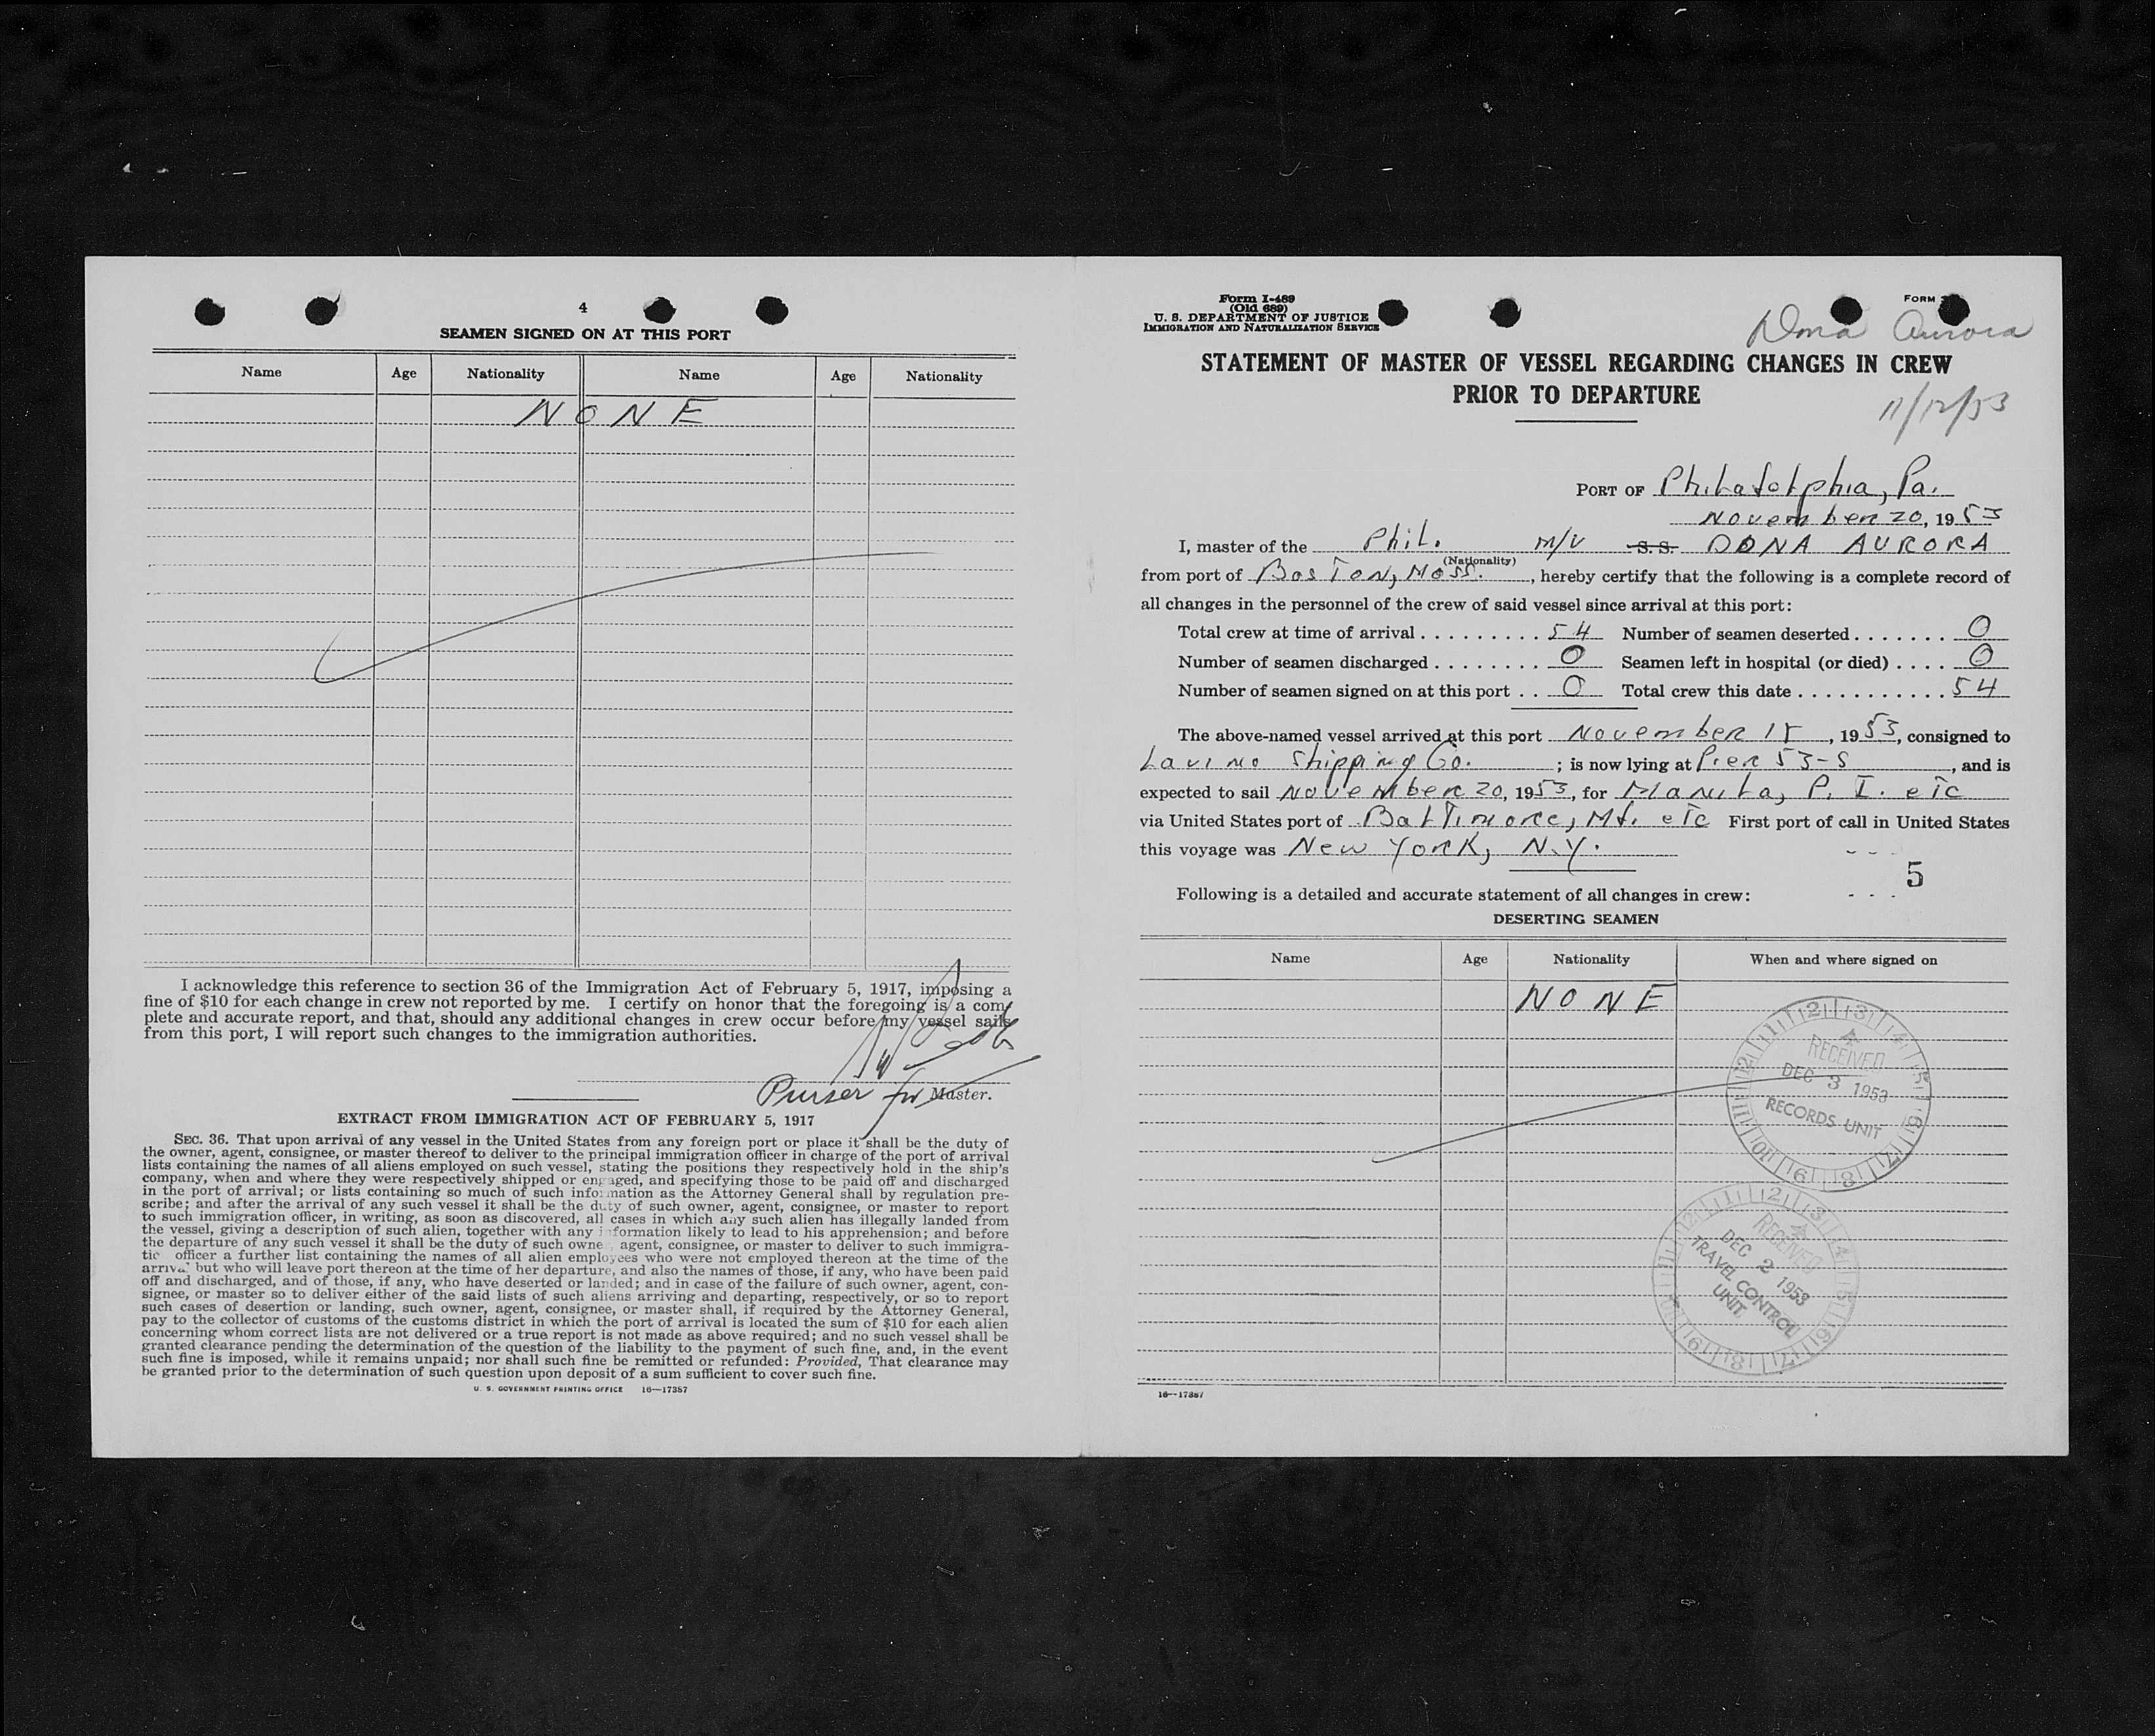 4
SEAMEN SIGNED ON AT THIS PORT
Name Age Nationality Name Age Nationality
NONE
I acknowledge this reference to section 36 of the Immigration Act of February 5, 1917, imposing a
fine of $10 for each change in crew not reported by me. I certify on honor that the foregoing is a com-
plete and accurate report, and that, should any additional changes in crew occur before my vessel sails
from this port, I will report such changes to the immigration authorities.
Purser for Master.
EXTRACT FROM IMMIGRATION ACT OF FEBRUARY 5, 1917
SEC. 36. That upon arrival of any vessel in the United States from any foreign port or place it shall be the duty of
the owner, agent, consignee, or master thereof to deliver to the principal immigration officer in charge of the port of arrival
lists containing the names of all aliens employed on such vessel, stating the positions they respectively hold in the ship's
company, when and where they were respectively shipped or engaged, and specifying those to be paid off and discharged
in the port of arrival; or lists containing so much of such information as the Attorney General shall by regulation pre-
scribe; and after the arrival of any such vessel it shall be the duty of such owner, agent, consignee, or master to report
to such immigration officer, in writing, as soon as discovered, all cases in which any such alien has illegally landed from
the vessel, giving a description of such alien, together with any information likely to lead to his apprehension; and before
the departure of any such vessel it shall be the duty of such owne , agent, consignee, or master to deliver to such immigra-
tio officer a further list containing the names of all alien employees who were not employed thereon at the time of the
arrival but who will leave port thereon at the time of her departure, and also the names of those, if any, who have been paid
off and discharged, and of those, if any, who have deserted or landed; and in case of the failure of such owner, agent, con-
signee, or master so to deliver either of the said lists of such aliens arriving and departing, respectively, or so to report
such cases of desertion or landing, such owner, agent, consignee, or master shall, if required by the Attorney General,
pay to the collector of customs of the customs district in which the port of arrival is located the sum of $10 for each alien
concerning whom correct lists are not delivered or a true report is not made as above required; and no such vessel shall be
granted clearance pending the determination of the question of the liability to the payment of such fine, and, in the event
such fine is imposed, while it remains unpaid; nor shall such fine be remitted or refunded: Provided, That clearance may
be granted prior to the determination of such question upon deposit of a sum sufficient to cover such fine.
U. S. GOVERNMENT PRINTING OFFICE 16—17387
Form I-489
(Old 689)
U. S. DEPARTMENT OF JUSTICE
IMMIGRATION AND NATURALIZATION SERVICE
FORM
Dona Aurora
STATEMENT OF MASTER OF VESSEL REGARDING CHANGES IN CREW
PRIOR TO DEPARTURE
11/12/53
PORT OF Philadelphia, Pa.
November 20, 1953
I, master of the Phil. M/V S. S. DONA AURORA
(Nationality)
from port of Boston, Mass. , hereby certify that the following is a complete record of
all changes in the personnel of the crew of said vessel since arrival at this port:
Total crew at time of arrival . . . . . . . . . 54 Number of seamen deserted . . . . . . . 0
Number of seamen discharged . . . . . . . . 0 Seamen left in hospital (or died) . . . . 0
Number of seamen signed on at this port . . 0 Total crew this date . . . . . . . . . . . 54
The above-named vessel arrived at this port November 18, 1953, consigned to
Lavino Shipping Co. ; is now lying at Pier 53-S , and is
expected to sail November 20, 1953, for Manila, P. I. etc
via United States port of Baltimore, Md. etc First port of call in United States
this voyage was New York, N.Y.
5
Following is a detailed and accurate statement of all changes in crew:
DESERTING SEAMEN
Name Age Nationality When and where signed on
NONE
RECEIVED
DEC 3 1953
RECORDS UNIT
RECEIVED
DEC 2 1953
TRAVEL CONTROL
UNIT
16—17387